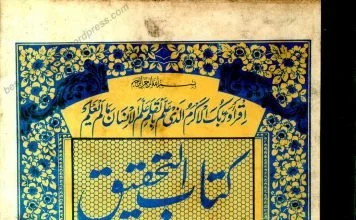 بسم الله الرحمن الرحیم
اقرأ وربك الاكرم الذى علم بالقلم علم الانسان مالم يعلم
كتاب التحقيق